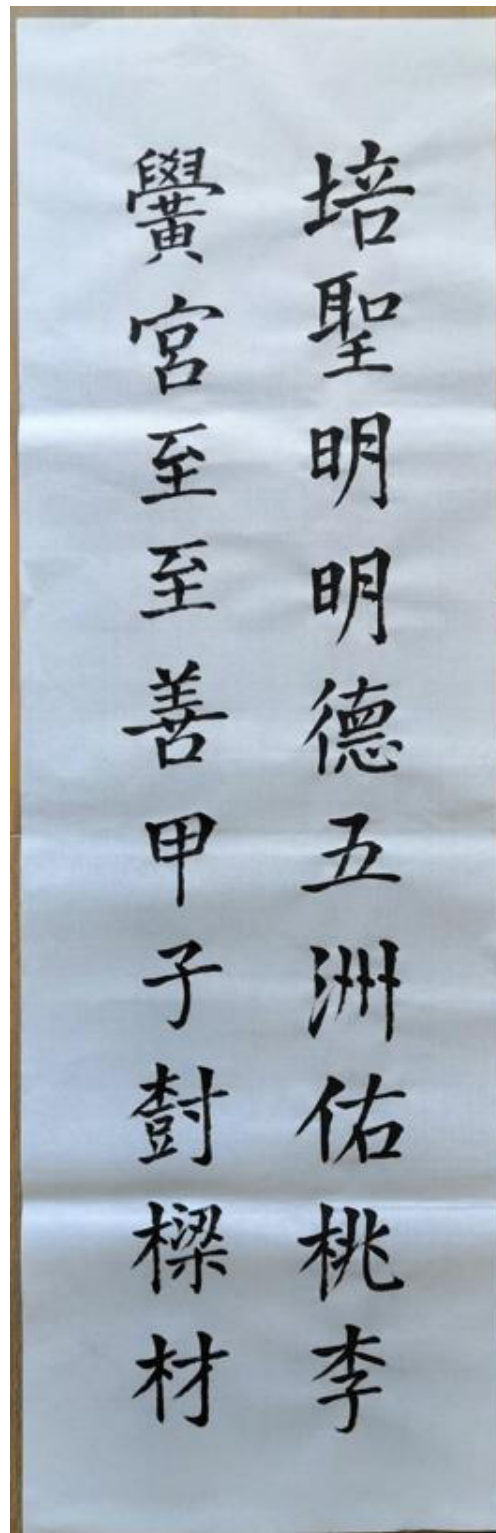 培聖明明德五洲佑桃李
黌宮至至善甲子尌樑材